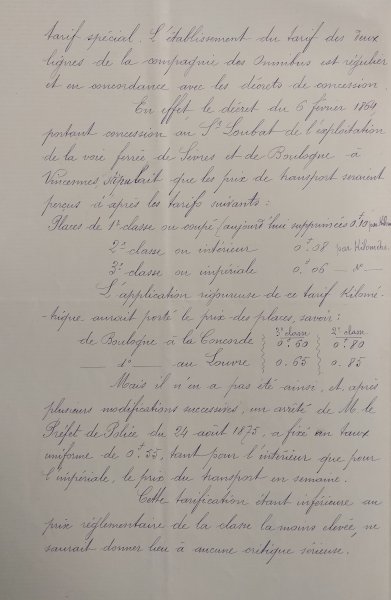 tarif spécial. L'établissement du tarif des deux
lignes de la compagnie des Omnibus est régulier
et en concordance avec les décrets de concession.
En effet le décret du 6 février 1854
portant concession au Sr Loubat de l'exploitation
de la voie ferrée de Sèvres et de Boulogne à
Vincennes, stipulait que les prix de transport seraient
perçus d'après les tarifs suivants :
Places de 1e classe ou coupé (aujourd'hui supprimées 0f10 par Kilom
2e classe ou intérieur 0f08 par Kilomètre
3e classe ou impériale 0f06 — do —
L'application rigoureuse de ce tarif kilomé-
-trique aurait porté le prix des places, savoir :
3e classe 2e classe
de Boulogne à la Concorde 0f60 0f80
— do — au Louvre 0.65 0.85
Mais il n'en a pas été ainsi, et, après
plusieurs modifications successives, un arrêté de M. le
Préfet de Police, du 24 août 1875, a fixé au taux
uniforme de 0f55, tant pour l'intérieur que pour
l'impériale, le prix du transport en semaine.
Cette tarification étant inférieure au
prix réglementaire de la classe la moins élevée, ne
saurait donner lieu à aucune critique sérieuse.